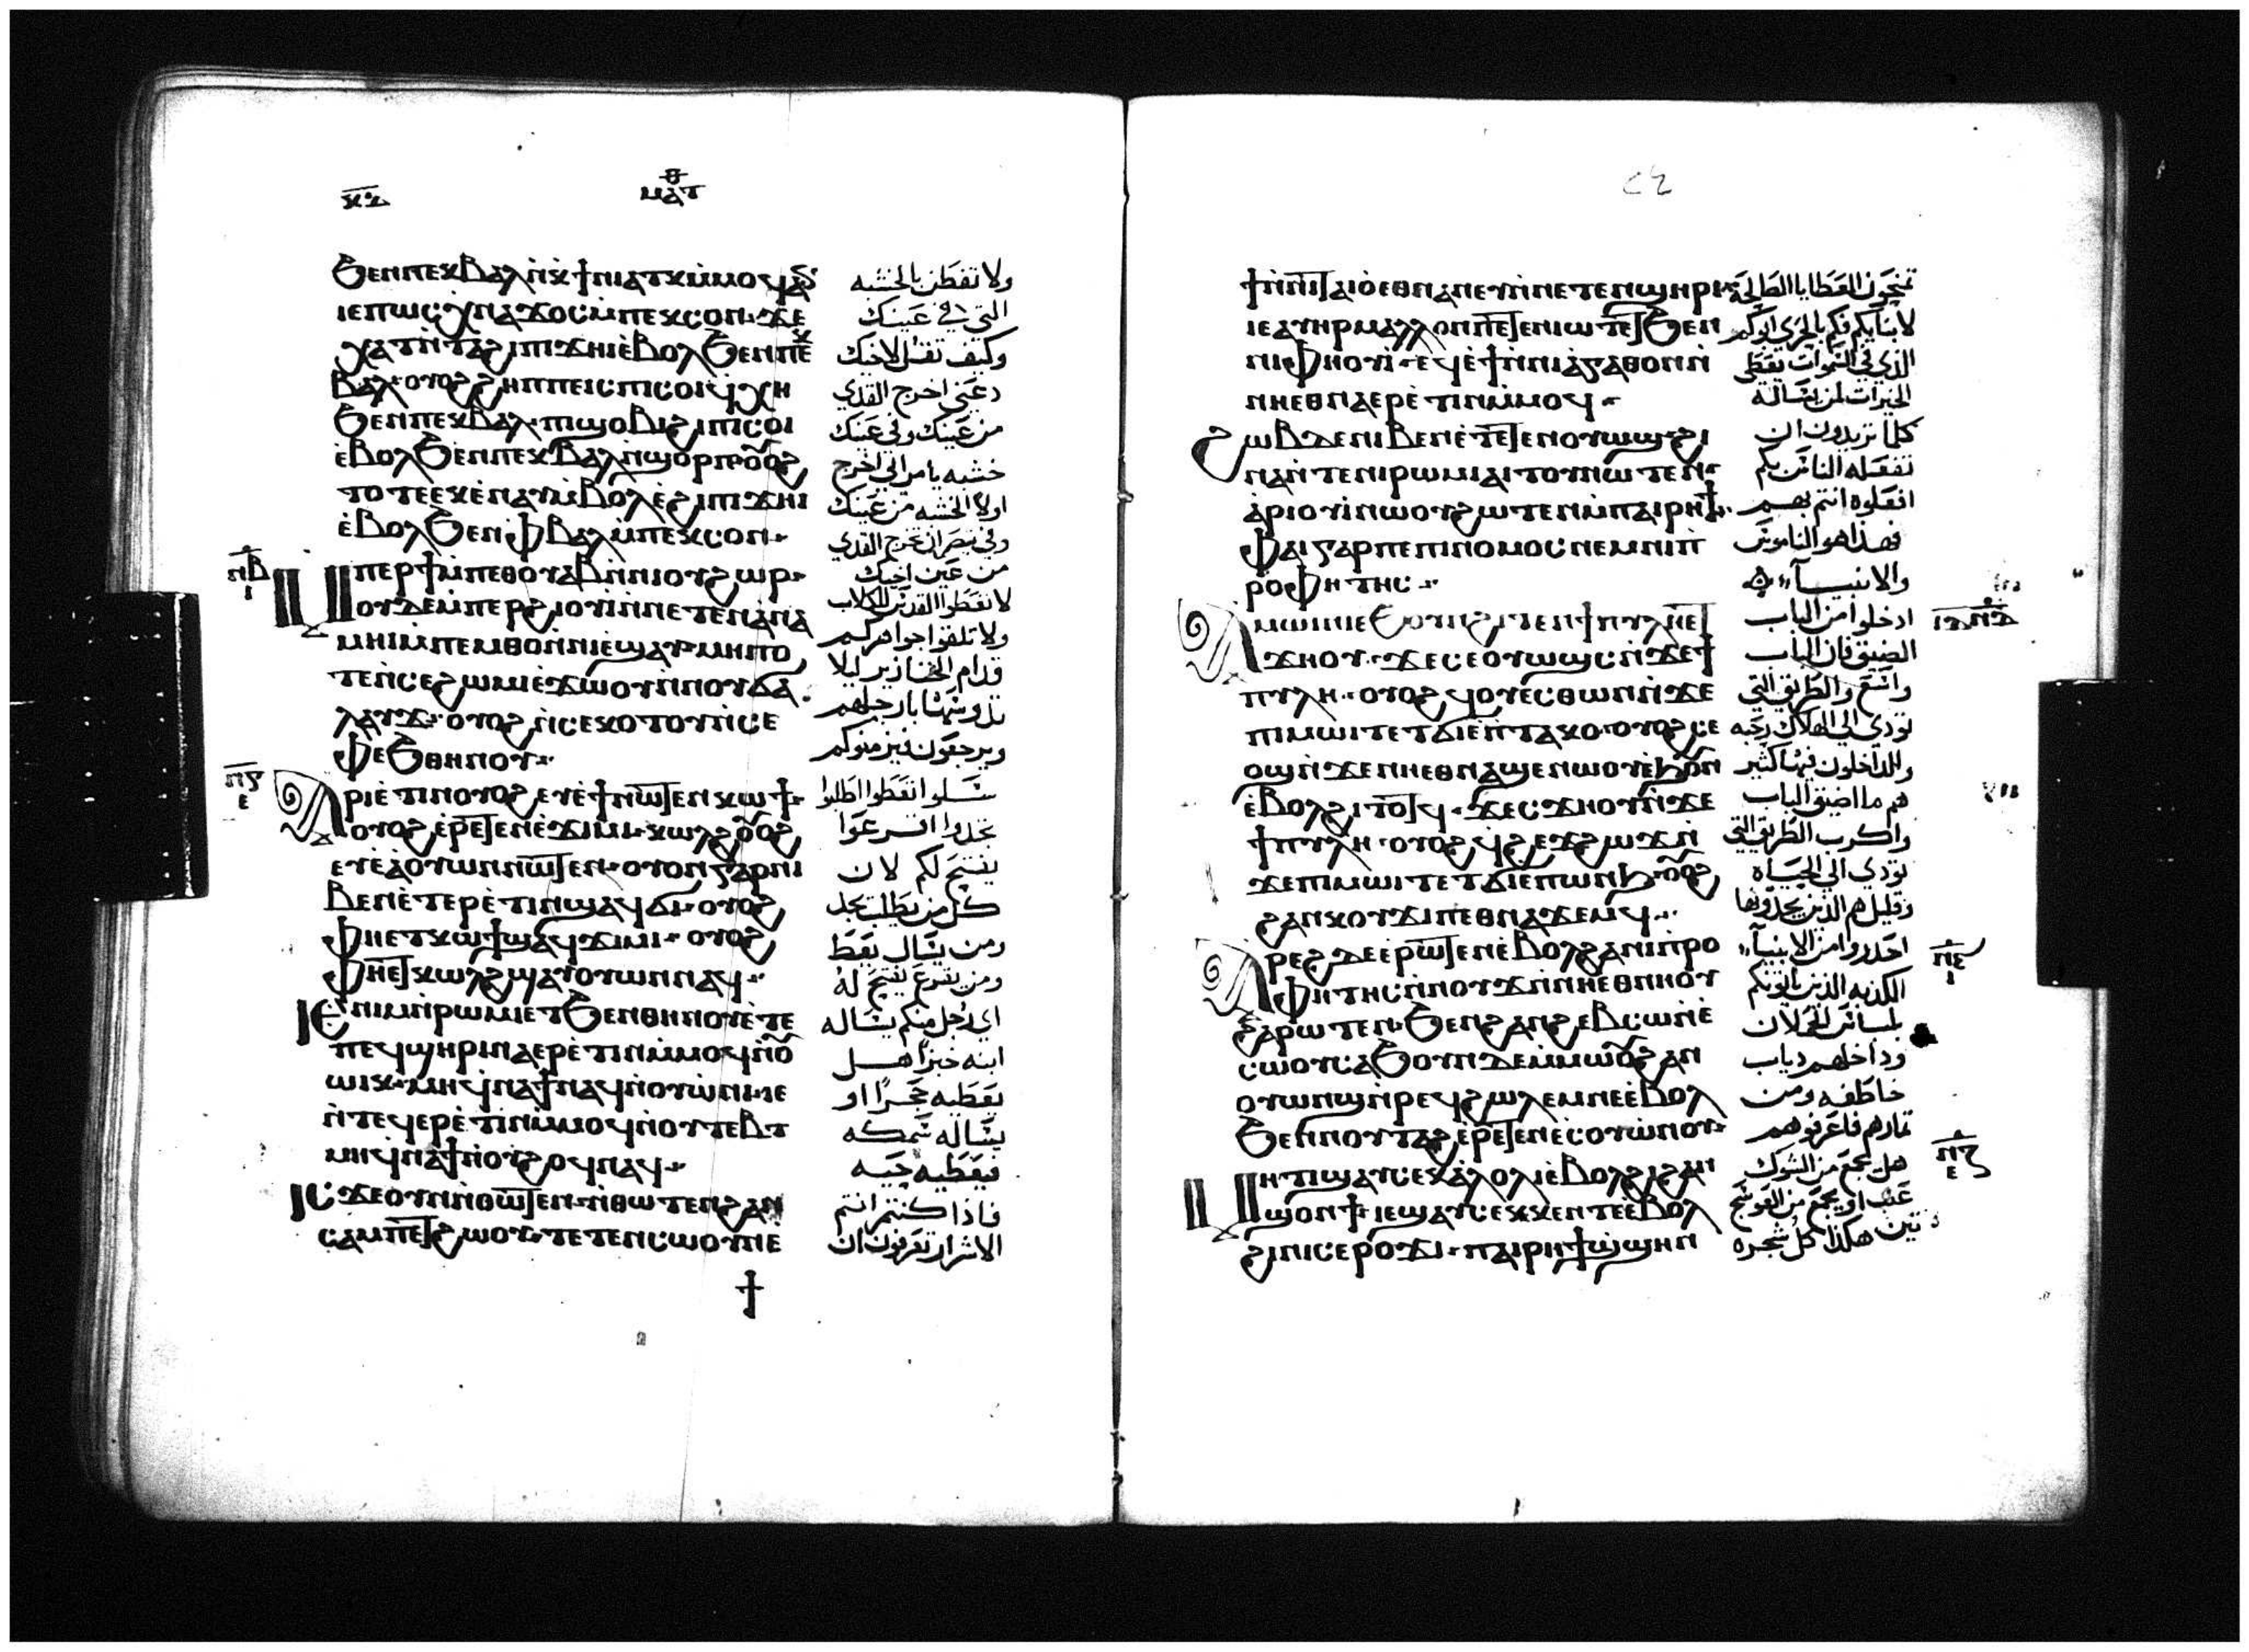 ⲕ̅ⲇ̅
ⲙⲁⲧⲑ
ϧⲉⲛⲡⲉⲕⲃⲁⲗⲛ̀ⲕ̀ϯⲛⲓⲁⲧⲕⲙ̀ⲙⲟϥⲁⲛ
ⲓⲉⲡⲱⲥⲭ̀ⲛⲁϫⲟⲥⲙ̀ⲡⲉⲕⲥⲟⲛ·ϫⲉ
ⲭⲁⲧⲛ̀ⲧⲁϩⲓⲡⲓϫⲏⲓⲉ̀ⲃⲟⲗϧⲉⲛⲡⲉⲕ
ⲃⲁⲗ·ⲟⲩⲟϩϩⲏⲡⲡⲉⲓⲥⲡⲓⲥⲟⲓϥ̀ⲭⲏ
ϧⲉⲛⲡⲉⲕⲃⲁⲗ·ⲡⲓϣⲟⲃⲓϩⲓⲡⲓⲥⲟⲓ
ⲉ̀ⲃⲟⲗϧⲉⲛⲡⲉⲕⲃⲁⲗⲛ̀ϣⲟⲣⲡ·ⲟ̅ⲟ̅ϩ
ⲧⲟⲧⲉⲉⲕⲉ̀ⲛⲁⲩⲙ̀ⲃⲟⲗⲉ̀ϩⲓⲡⲓϫⲏⲓ
ⲉ̀ⲃⲟⲗϧⲉⲛⲫ̀ⲃⲁⲗⲙ̀ⲡⲉⲕⲥⲟⲛ·
ⲛⲃ̅ ⲓ
ⲙⲡⲉⲣϯⲙ̀ⲡⲉⲑⲟⲩⲁⲃⲛ̀ⲛⲓⲟⲩϩⲱⲣ·
ⲟⲩⲇⲉⲙ̀ⲡⲉⲣϩⲓⲟⲩⲓ̀ⲛ̀ⲛⲉⲧⲉⲛⲁ̀ⲛⲁ
ⲙⲏⲓⲙ̀ⲡⲉⲙⲑⲟⲛ̀ⲛⲓⲉ̀ϣⲁⲩ·ⲙⲏⲡⲟ
ⲧⲉⲛ̀ⲥⲉϩⲱⲙⲓⲉ̀ϫⲱⲟⲩⲛ̀ⲛⲟⲩϭⲁ
ⲗⲁⲩϫ·ⲟⲩⲟϩⲛ̀ⲥⲉⲕⲟⲧⲟⲩⲛ̀ⲥⲉ
ⲫⲉϧⲑⲏⲛⲟⲩ·
ⲛⲅ̅ ⲉ
ⲁⲣⲓⲉ̀ⲧⲓⲛⲟⲩⲟϩⲉⲩⲉ̀ϯⲛⲱ̅ⲧ̅ⲉⲛⲕⲱϯ·
ⲟⲩⲟϩⲉ̀ⲣⲉ̅ⲧ̅ⲉⲛⲉ̀ϫⲓⲙⲓ·ⲕⲱⲗϩⲟ̅ⲟ̅ϩ
ⲉⲩⲉ̀ⲁ̀ⲟⲩⲱⲛⲛⲱ̅ⲧ̅ⲉⲛ·ⲟⲩⲟⲛⲅⲁⲣⲛⲓ
ⲃⲉⲛⲉ̀ⲧⲉⲣⲉ̀ⲧⲓⲛϣⲁϥϭⲓ·ⲟⲩⲟϩ
ⲫⲏⲉⲧⲕⲱϯϣⲁϥϫⲓⲙⲓ·ⲟⲩⲟϩ
ⲫⲏⲉⲧⲕⲱⲗϩϣⲁⲩⲟⲩⲱⲛⲛⲁϥ·
ⲓⲉⲛⲓⲙⲛ̀ⲣⲱⲙⲓⲉⲧϧⲉⲛⲑⲏⲛⲟⲩⲉ̀ⲧⲉ
ⲡⲉϥϣⲏⲣⲓⲛⲁⲉⲣⲉ̀ⲧⲓⲛⲙ̀ⲙⲟϥⲛ̀ⲟ̅
ⲱⲓⲕ·ⲙⲏϥ̀ⲛⲁϯⲛⲁϥⲛ̀ⲟⲩⲱ̀ⲛⲓ·ⲓⲉ
ⲛ̀ⲧⲉϥⲉⲣⲉ̀ⲧⲓⲛⲙ̀ⲙⲟϥⲛ̀ⲟⲩⲧⲉⲃⲧ
ⲙⲏϥ̀ⲛⲁϯⲛ̀ⲟⲩϩⲟϥⲛⲁϥ·
ⲓⲥϫⲉⲟⲩⲛⲛ̀ⲑⲱ̅ⲧ̅ⲉⲛ·ⲛ̀ⲑⲱⲧⲉⲛϩⲁⲛ
ⲥⲁⲙⲡⲉ̅ⲧ̅ϩⲱⲟⲩ·ⲧⲉⲧⲉⲛⲥⲱⲟⲩⲛⲉ
ϯ
ولا تفطن بالخشبه
التي في عينك
وكيف تقل لاخيك
دعني اخرج القدي
من عينك وفي عينك
خشبه يا مراي اخرج
اولا الخشبه من عينك
وفي تبصر ان تخرج القدي
من عين اخيك
لا تعطوا القدس للكلاب
ولا تلقوا جواهركم
قدام الخنازير ليلا
تدوسها بارجلهم
ويرجعون فيزمنوكم
سلوا تعطوا اطلبوا
تجدوا اقرعوا
يفتح لكم لان
كل من يطلب يجد
ومن يسال يعط
ومن يقرع يفتح له
اي رجل منكم يساله
ابنه خبزا هل
يعطيه حجرا او
يساله سمكه
فيعطيه حيه
فاذا كنتم انتم
الاشرار تعرفون ان
٢٤
ϯⲛ̀ⲛⲓⲧⲁⲓⲟ̀ⲉⲑⲛⲁⲛⲉⲩⲛ̀ⲛⲉⲧⲉⲛϣⲏⲣⲓ
ⲓⲉⲁⲩⲏⲣⲙⲁⲗⲗⲟⲛⲡⲉ̅ⲧ̅ⲉⲛⲓⲱⲧⲉ̅ⲧ̅ϧⲉⲛ
ⲛⲓⲫⲏⲟⲩⲓ̀·ⲉϥⲉ̀ϯⲛ̀ⲛⲓⲁ̀ⲅⲁⲑⲟⲛⲛ̀
ⲛⲏⲉⲑⲛⲁⲉⲣⲉ̀ⲧⲓⲛⲙ̀ⲙⲟϥ·
ϩⲱⲃⲇⲉⲛⲓⲃⲉⲛⲉ̀ⲧⲉ̅ⲧ̅ⲉⲛⲟⲩⲱϣ·ϩⲓ
ⲛⲁⲛ̀ⲧⲉⲛⲓⲣⲱⲙⲓⲁⲓⲧⲟⲩⲛⲱⲧⲉⲛ·
ⲁ̀ⲣⲓⲟⲩⲓ̀ⲛⲱⲟⲩϩⲱⲧⲉⲛⲙ̀ⲡⲁⲓⲣⲏϯ·
ⲫⲁⲓⲅⲁⲣⲡⲉⲡⲓⲛⲟⲙⲟⲥⲛⲉⲙⲛⲓⲡ̀
ⲣⲟⲫⲏⲧⲏⲥ·
ⲁⲙⲱⲓⲛⲓⲉϧⲟⲩⲛϩⲓⲧⲉⲛϯⲡⲩⲗⲏⲉ̅ⲧ̅
ϫⲏⲟⲩ·ϫⲉⲥⲉⲟⲩⲱϣⲥⲛ̀ϫⲉϯ
ⲡⲩⲗⲏ·ⲟⲩⲟϩϥⲟⲩⲉⲥⲑⲱⲛⲛ̀ϫⲉ
ⲡⲓⲙⲱⲓⲧⲉⲧϭⲓⲉ̀ⲡⲧⲁⲕⲟ·ⲟⲩⲟϩⲥⲉ
ⲟϣⲛ̀ϫⲉⲛⲏⲉⲑⲛⲁϣⲉⲛⲱⲟⲩⲉ̀ϧⲟⲩⲛ
ⲉ̀ⲃⲟⲗϩⲓⲧⲟ̅ⲧ̅ϥ·ϫⲉⲥϫⲏⲟⲩⲛ̀ϫⲉ
ϯⲡⲩⲗⲏ·ⲟⲩⲟϩϥ̀ϩⲉϫϩⲱϫⲛ̀
ϫⲉⲡⲓⲙⲱⲓⲧⲉⲧϭⲓⲉⲡⲱⲛϧ·ⲟ̅ⲟ̅ϩ
ϩⲁⲛⲕⲟⲩϫⲓⲡⲉⲑⲛⲁϫⲉⲙϥ·
ⲁⲣⲉϩⲇⲉⲉ̀ⲣⲱ̅ⲧ̅ⲉⲛⲉ̀ⲃⲟⲗϩⲁⲛⲓⲡ̀ⲣⲟ
ⲫⲏⲧⲏⲥⲛ̀ⲛⲟⲩϫⲛ̀ⲛⲏⲉⲑⲛⲏⲟⲩ
ϩⲁⲣⲱⲧⲉⲛ·ϧⲉⲛϩⲁⲛϩⲉⲃⲥⲱⲛ̀ⲉ̀
ⲥⲱⲟⲩ·ⲥⲁϧⲟⲩⲛⲇⲉⲙ̀ⲙⲱⲟⲩϩⲁⲛ
ⲟⲩⲱⲛϣⲛ̀ⲣⲉϥϩⲱⲗⲉⲙⲛⲉⲉ̀ⲃⲟⲗ
ϧⲉⲛⲛⲟⲩⲧⲁϩⲉ̀ⲣⲉ̅ⲧ̅ⲉⲛⲉ̀ⲥⲟⲩⲱⲛⲟⲩ·
ⲙⲏⲧⲓϣⲁⲩⲥⲉⲕⲁ̀ⲗⲟⲗⲓⲉ̀ⲃⲟⲗϩⲓϩⲁⲛ
ϣⲟⲛϯ·ⲓⲉϣⲁⲩⲥⲉⲕⲕⲉⲛⲧⲉⲉ̀ⲃⲟⲗ
ϩⲓⲛⲓⲥⲉⲣⲟϫⲓ·ⲡⲁⲓⲣⲏϯϣ̀ϣⲏⲛ
تمنحون العطايا الصالحه
لابنايكم فكم بالحري ابوكم
الذي في السموات يعطي
الخيرات لمن يساله
كلما تريدون ان
تفعله الناس بكم
افعلوه انتم بهم
فهذا هو الناموس
والانبيا
ادخلوا من الباب
الضيق فان الباب
واسع والطريق التي
تودي الي الهلاك رحبه
والداخلون فيها كثير
هم ما اضيق الباب
واكرب الطريق التي
تودي الي الحياه
وقليل هم الذين يجدونها
احدروا من الانبيا
الكدبه الذين ياتونكم
بلباس الحملان
وداخلهم دياب
خاطفه ومن
ثمارهم فاعرفوهم
هل يجمع من الشوك
عنب او يجمع من العوسج
تين هكذا كل شجره